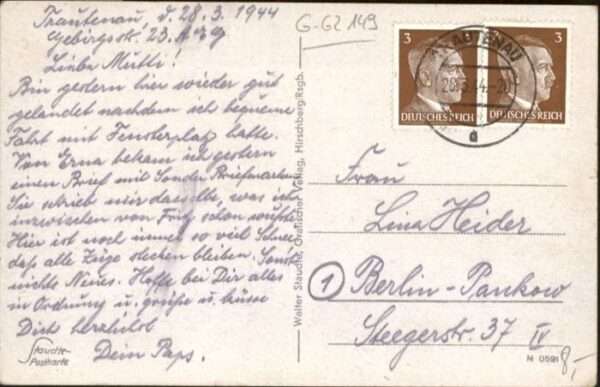 Trautenau, d. 28.3.1944
Gebirgsstr. 23.
Liebe Mutti!
Bin gestern hier wieder gut
gelandet nachdem ich bequeme
Fahrt mit Fensterplatz hatte.
Von Erna bekam ich gestern
einen Brief mit Sonder Briefmarken
Sie schrieb mir dasselbe, was ich
inzwischen von Fritz schon wußte.
Hier ist noch immer so viel Schnee
daß alle Züge stecken bleiben. Sonst
nichts Neues. Hoffe bei Dir alles
in Ordnung u. grüße u. küsse
Dich herzlichst
Dein Paps.
Staudte-
Postkarte
G-GZ 149
Walter Staudte, Grafischer Verlag, Hirschberg/Rsgb.
3
DEUTSCHES REICH
3
DEUTSCHES REICH
TRAUTENAU
28.3.44.-20
a
Frau
Lina Heider
1 Berlin-Pankow
Steegerstr. 37 IV
N 0591
8,-